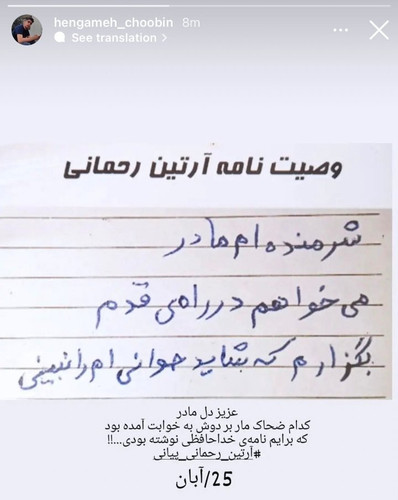 hengameh_choobin 8m
See translation >
وصیت نامه آرتین رحمانی
شرمنده ام مادر
می خواهم در راهی قدم
بگزارم که شاید جوانی ام را نبینی
عزیز دل مادر
کدام ضحاک مار بر دوش به خوابت آمده بود
که برایم نامه‌ی خداحافظی نوشته بودی...!!
#آرتین_رحمانی_پیانی
25/آبان